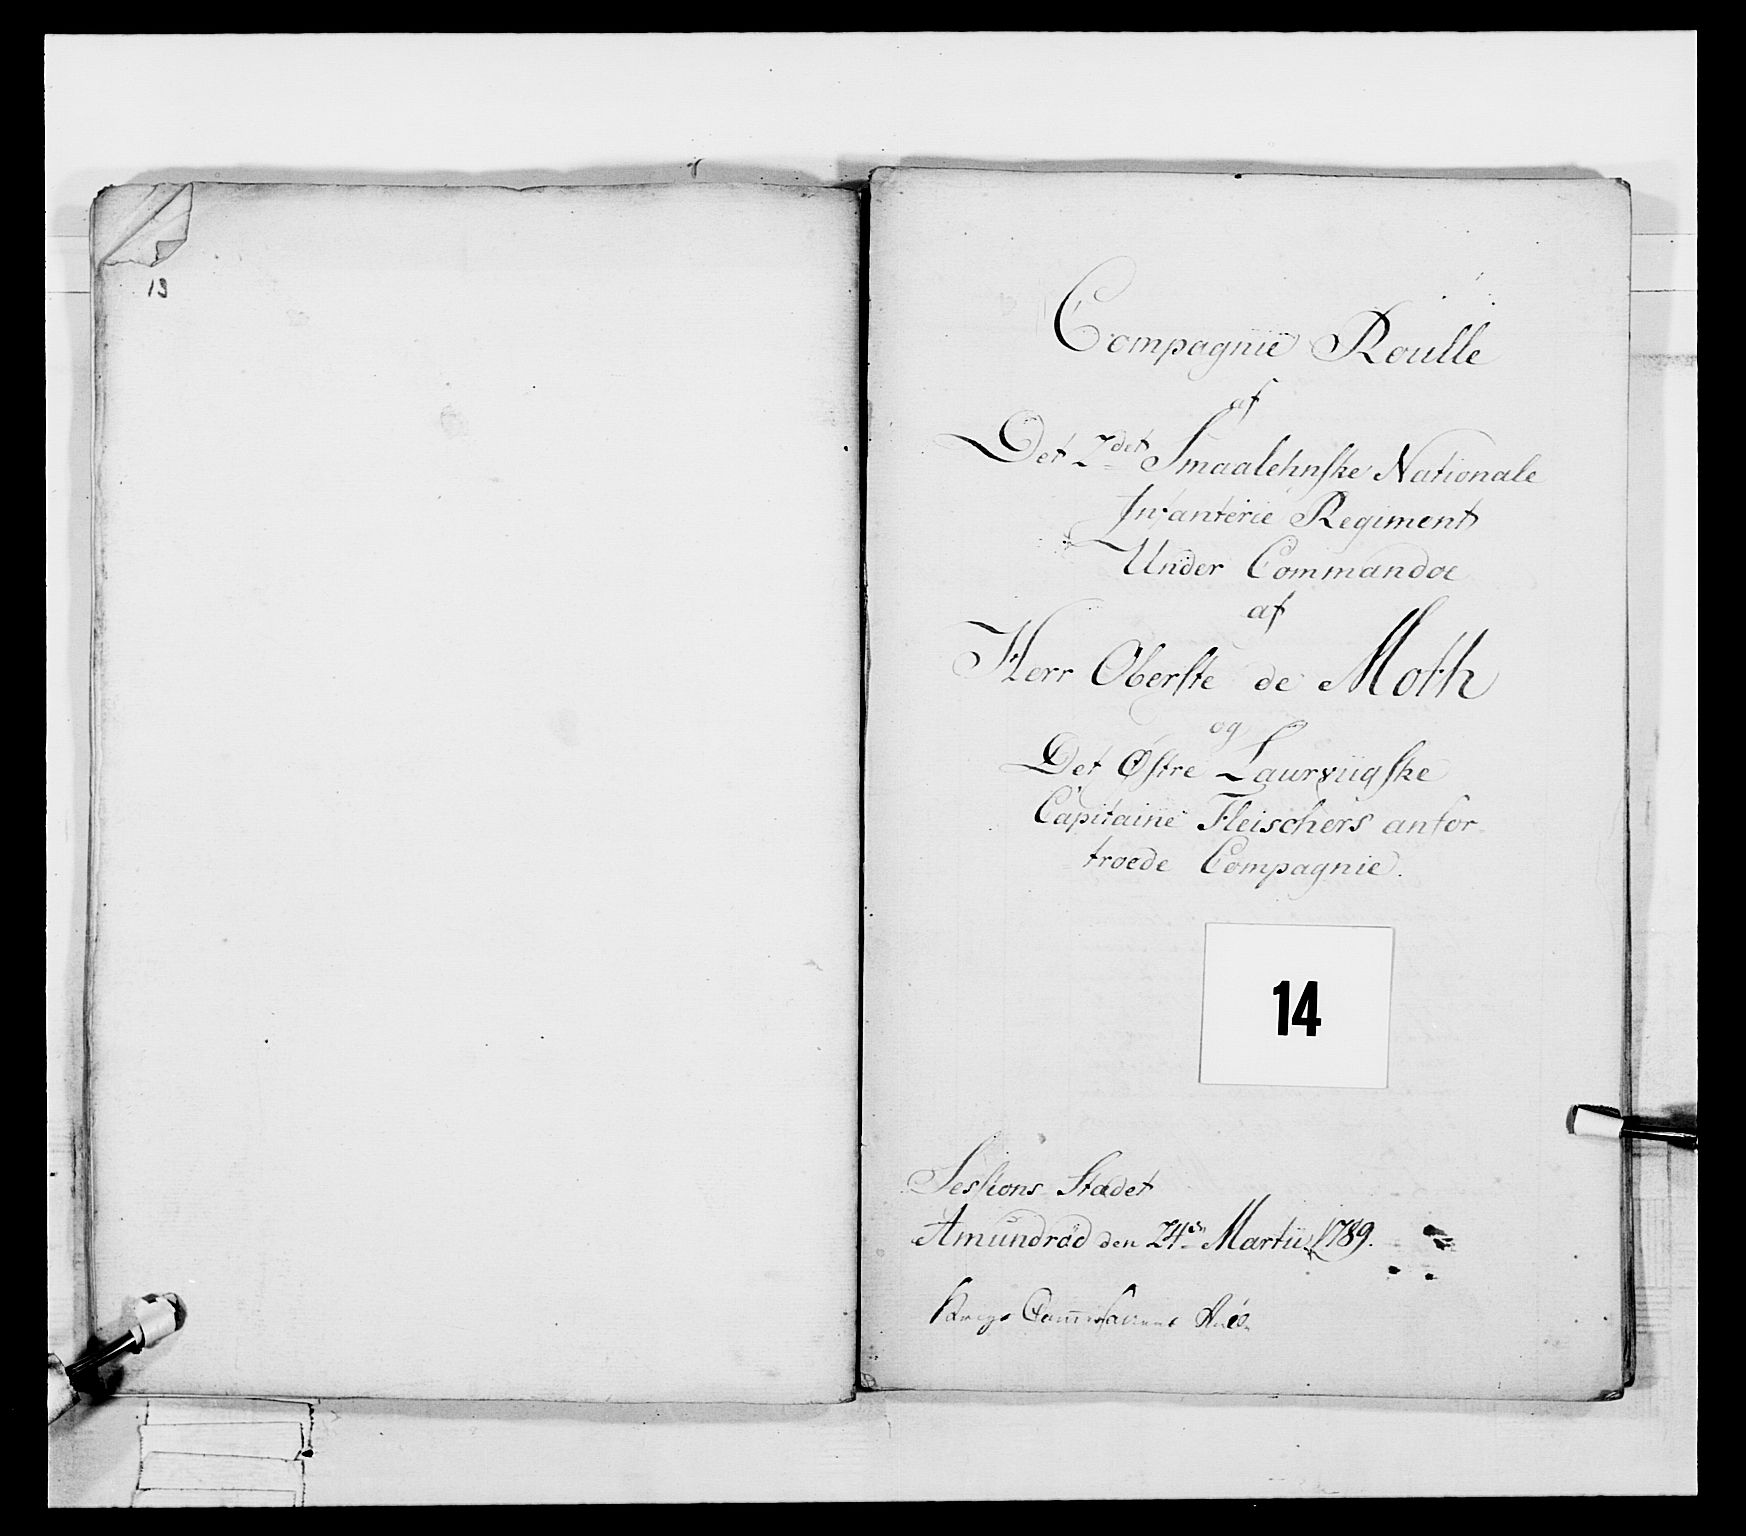 13
Compagnie Roulle
af
Det 2det Smaalehnske Nationale
Infanterie Regiment
Under Commandoe
af
Herr Oberste de Moth
og
Det Østre Laurviigske
Capitaine Fleischers anfor-
troede Compagnie.
14
Sessions Stædet
Amundröd den 24de Martii 1789.
Krigs Commissairens